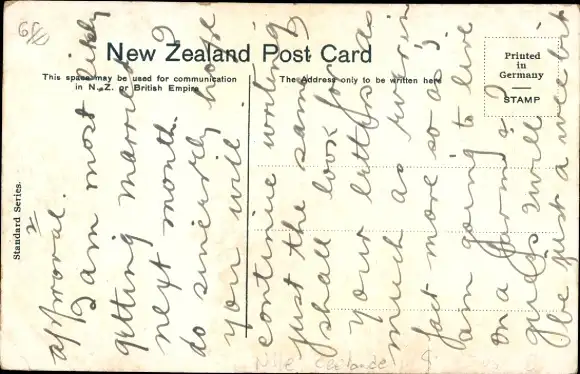 New Zealand Post Card
This space may be used for communication
in N.Z. or British Empire
The Address only to be written here
Printed
in
Germany
STAMP
Standard Series.
approval.
I am most likely
getting married
next month. I
do sincerely hope
you will
continue writing
just the same I
shall look for
your letters as
much as ever in
fact more so as I
am going to live
on a farm &
guess I will
be just a wee bit